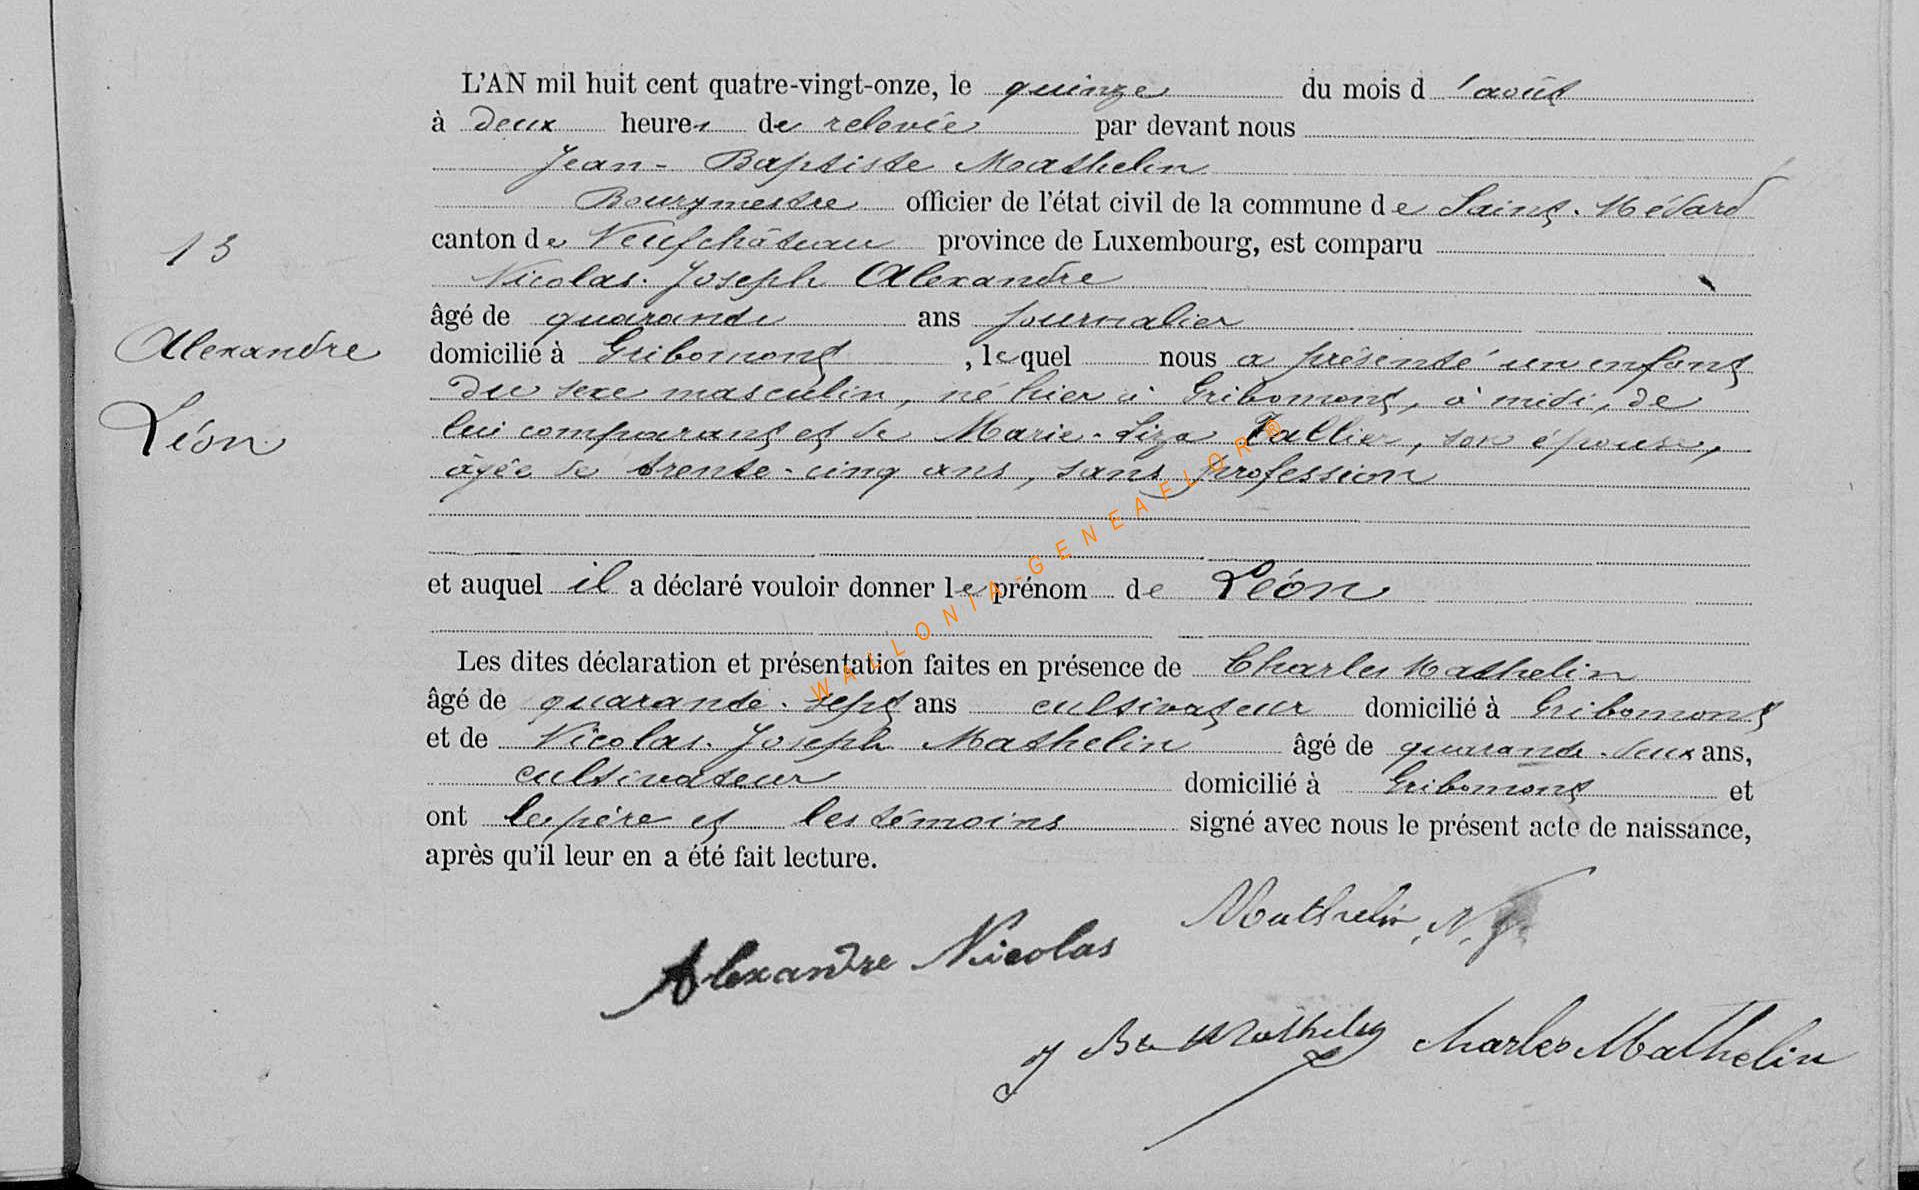 L'AN mil huit cent quatre-vingt-onze, le quinze du mois d'août
à deux heures de relevée par devant nous
Jean-Baptiste Mathelin
Bourgmestre officier de l'état civil de la commune de Saint-Médard
canton de Neufchâteau province de Luxembourg, est comparu
13
Nicolas-Joseph Alexandre
âgé de quarante ans journalier
Alexandre
domicilié à Gribomont, lequel nous a présenté un enfant
du sexe masculin, né hier à Gribomont, à midi, de
Léon
lui comparant et de Marie-Liza Vallier, son épouse,
âgée de trente-cinq ans, sans profession
et auquel il a déclaré vouloir donner le prénom de Léon
Les dites déclaration et présentation faites en présence de Charles Mathelin
âgé de quarante-sept ans cultivateur domicilié à Gribomont
et de Nicolas-Joseph Mathelin âgé de quarante-deux ans,
cultivateur domicilié à Gribomont et
ont le père et les témoins signé avec nous le présent acte de naissance,
après qu'il leur en a été fait lecture.
Mathelin, N. J.
Alexandre Nicolas
J Bte Mathelin Charles Mathelin
WALLONIA-GENEAFLOR®